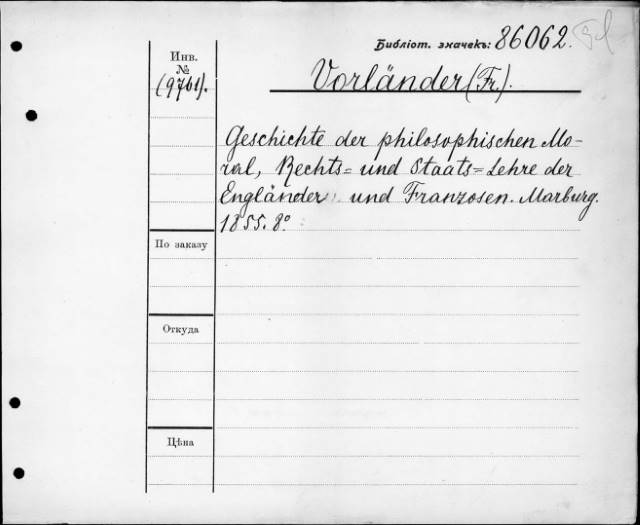 Библіот. значекъ: 86062.
Инв.
№
(9761).
Vorländer (Fr.).
Geschichte der philosophischen Mo-
ral, Rechts= und Staats=Lehre der
Engländer und Franzosen. Marburg.
1855. 8°
По заказу
Откуда
Цѣна